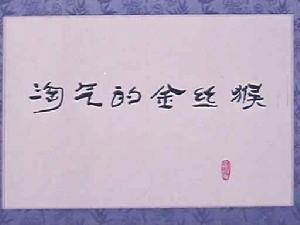 淘气的金丝猴